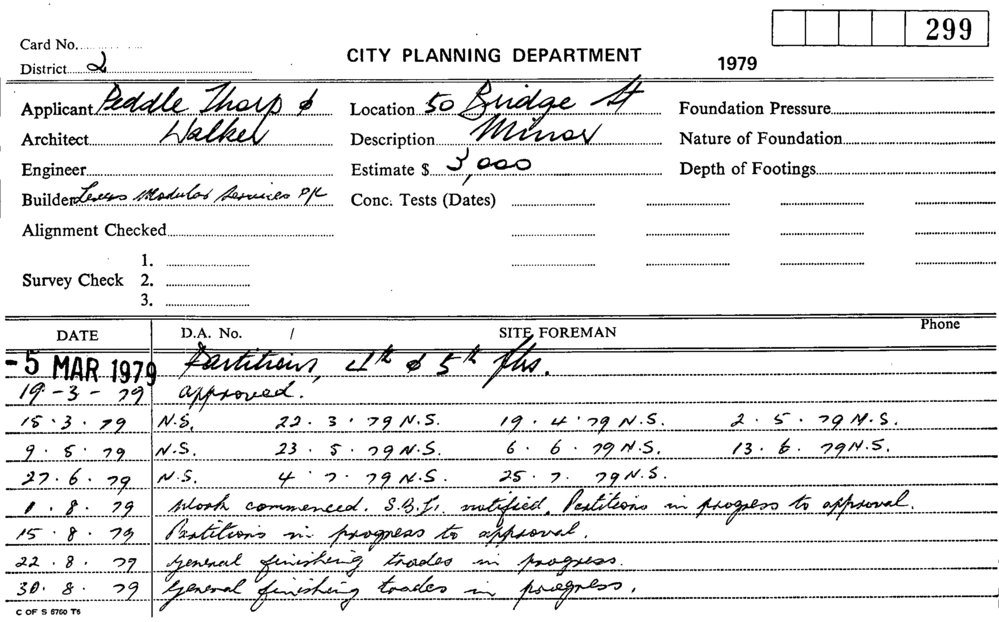 299
Card No.
CITY PLANNING DEPARTMENT
1979
District 2
Applicant Peddle Thorp &
Location 50 Bridge St
Foundation Pressure
Architect Walker
Description Minor
Nature of Foundation
Engineer
Estimate $ 3,000
Depth of Footings
Builder Modular Services P/L
Conc. Tests (Dates)
Alignment Checked
1.
Survey Check 2.
3.
DATE D.A. No. / SITE FOREMAN Phone
-5 MAR 1979 Partitions, 4th & 5th flrs.
19-3-79 approved.
15.3.79 N.S. 22.3.79 N.S. 19.4.79 N.S. 2.5.79 N.S.
9.5.79 N.S. 23.5.79 N.S. 6.6.79 N.S. 13.6.79 N.S.
27.6.79 N.S. 4.7.79 N.S. 25.7.79 N.S.
1.8.79 Work commenced. S.B.I. notified. Partitions in progress to approval.
15.8.79 Partitions in progress to approval.
22.8.79 General finishing trades in progress.
30.8.79 General finishing trades in progress.
C OF S 6760 T6